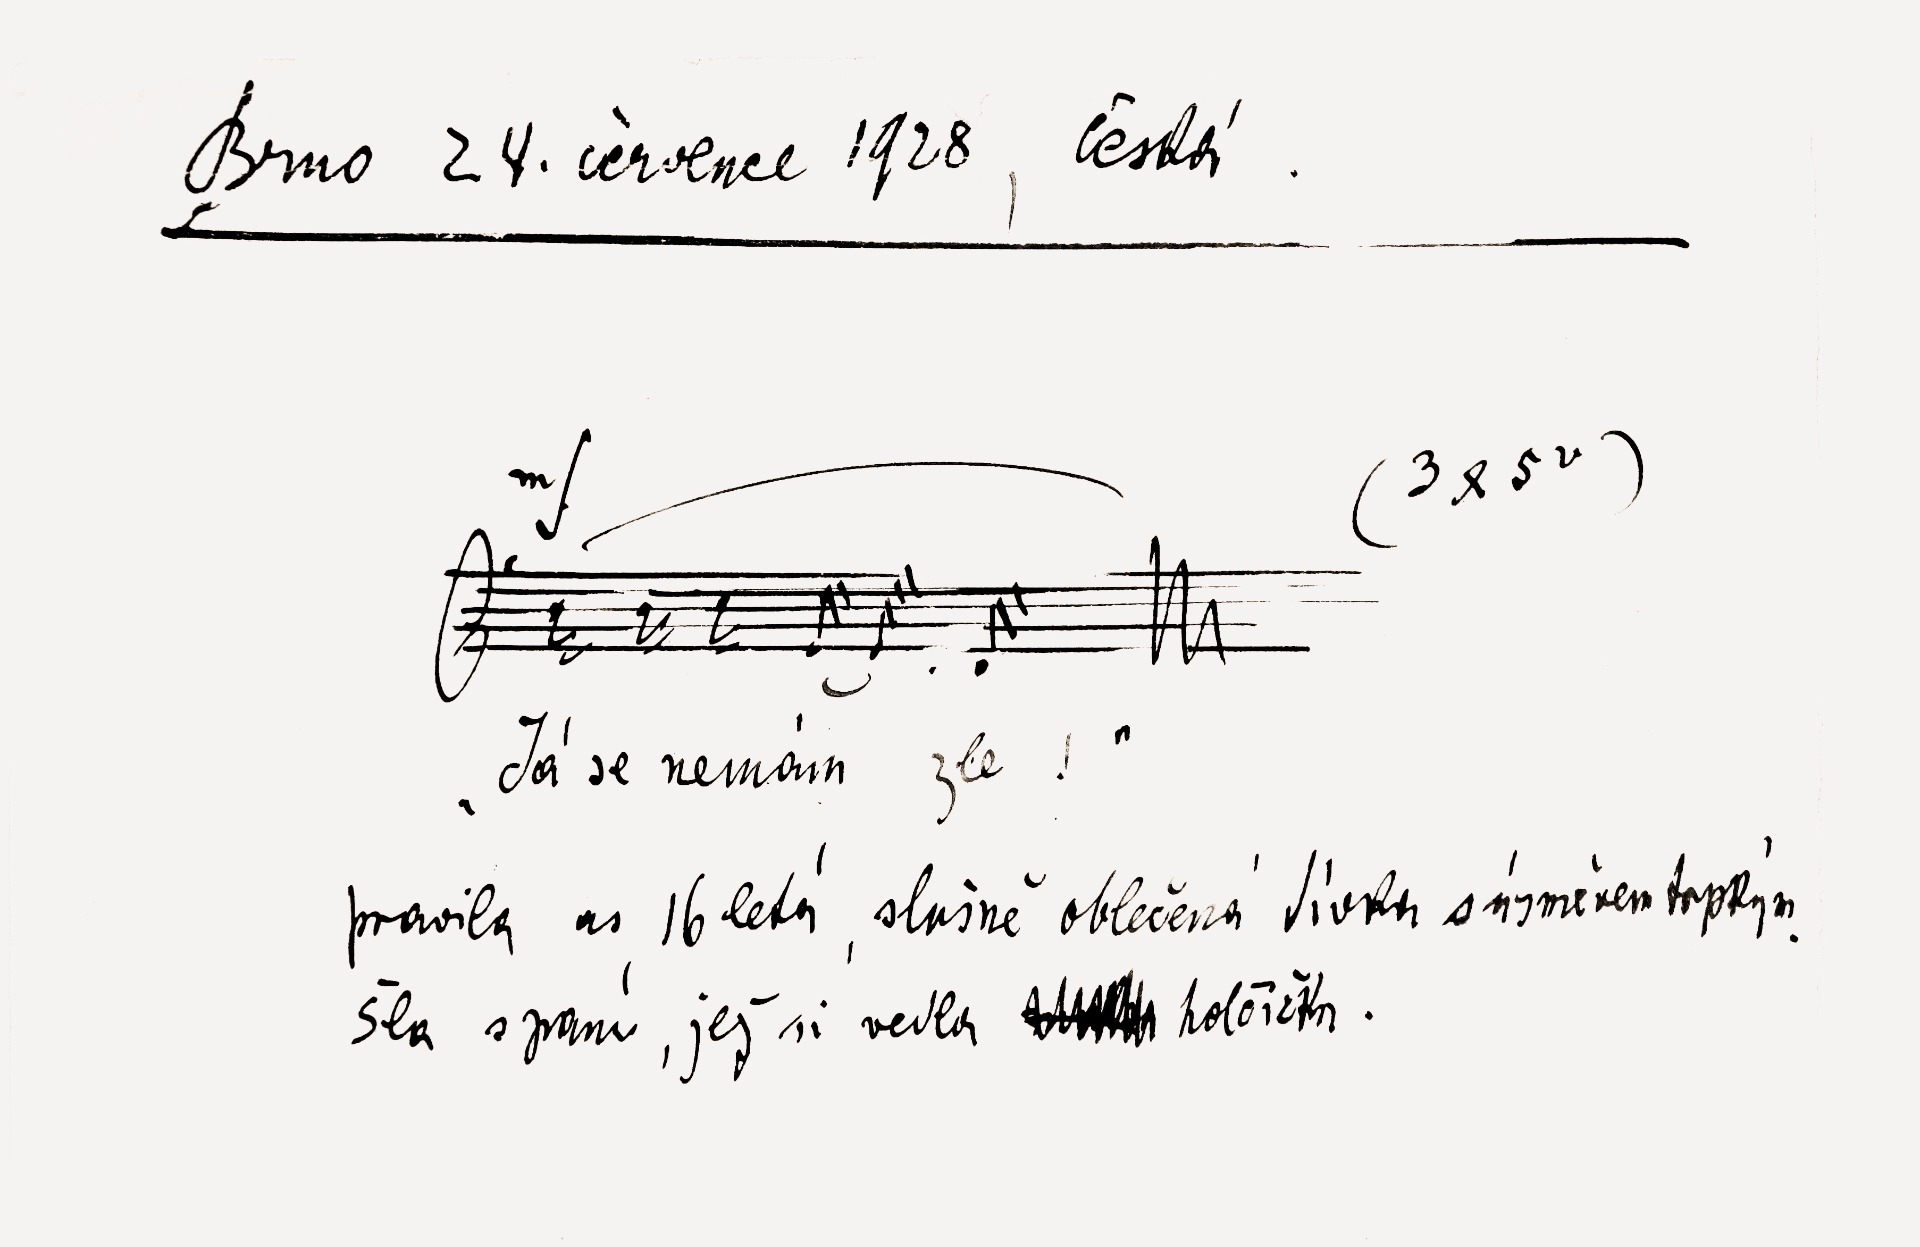 Brno 24. července 1928, Česká.
mf
(3 x 5 v)
„Já se nemám zle!"
pravila as 16 letá, slušně oblečená dívka s úsměvem trpkým.
Šla s paní, jež si vedla holčičku.